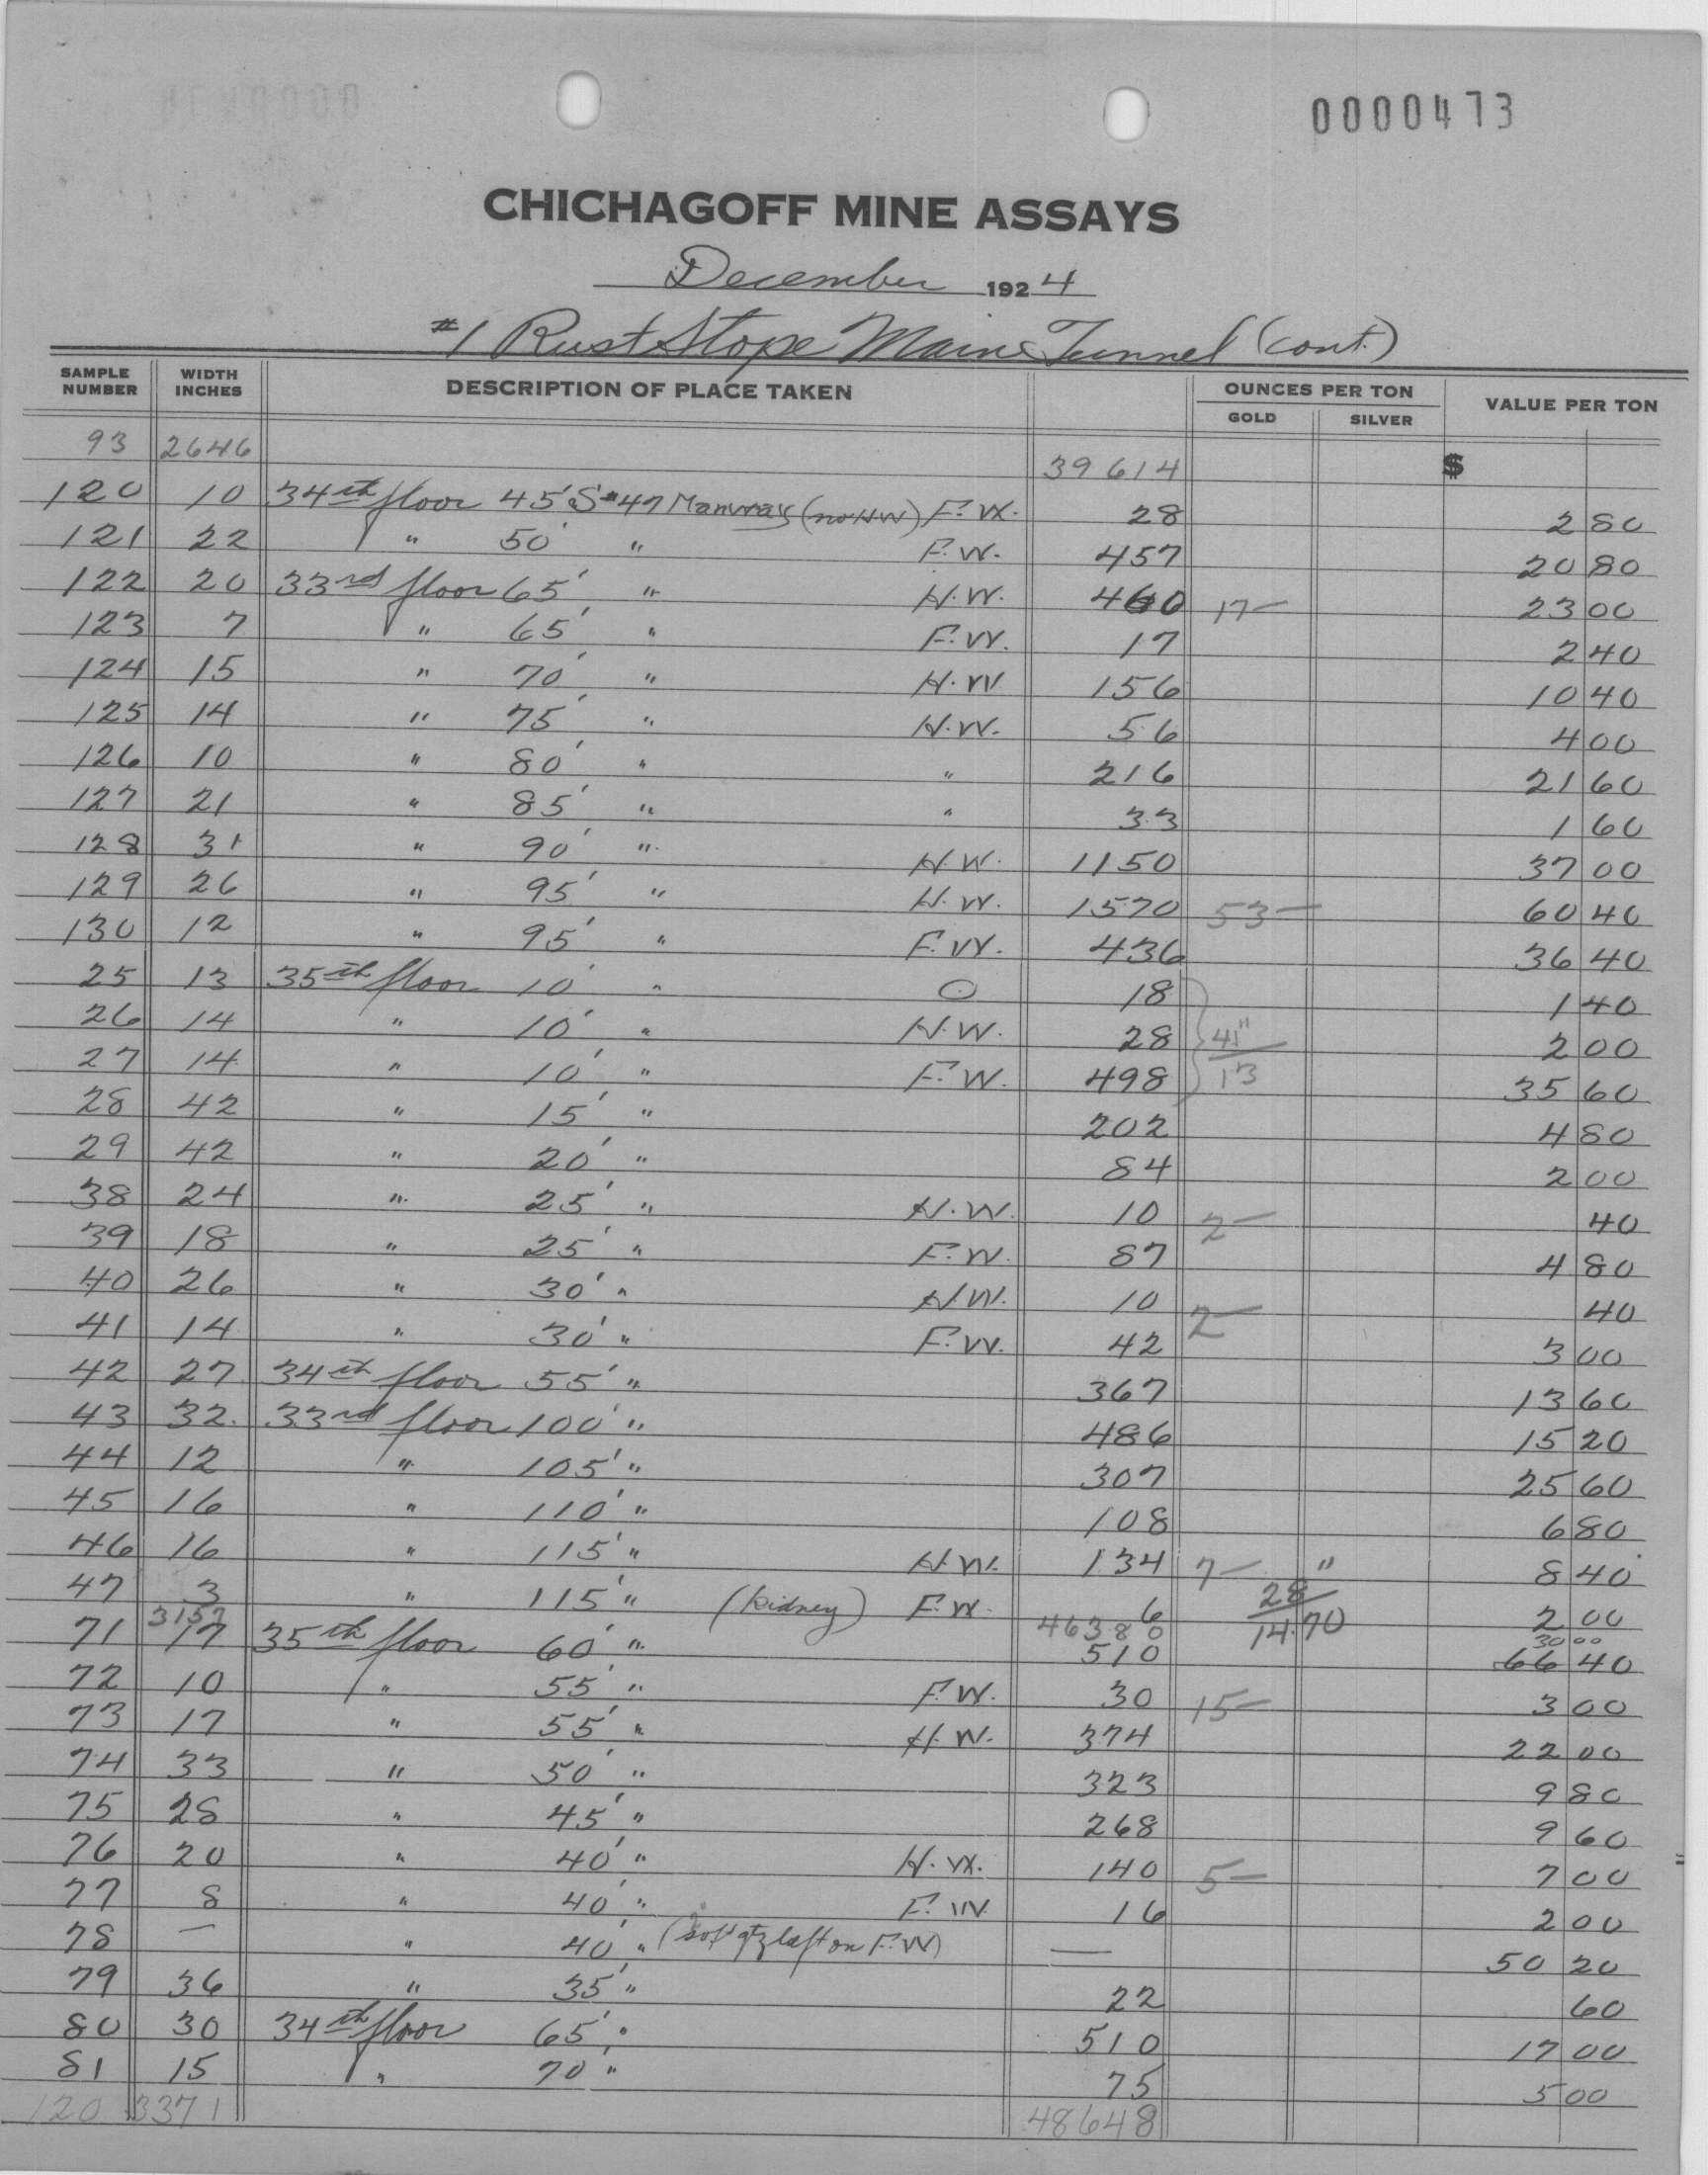 0000473
CHICHAGOFF MINE ASSAYS
December 1924
#1 Rust Stope Main Tunnel (cont.)
SAMPLE NUMBER WIDTH INCHES DESCRIPTION OF PLACE TAKEN OUNCES PER TON GOLD SILVER VALUE PER TON
93 2646 39614 $
120 10 34th floor 45' S #47 Manway (no HW) F.W. 28 2 80
121 22 " 50' " F.W. 457 20 80
122 20 33rd floor 65' " H.W. 460 17— 23 00
123 7 " 65' " F.W. 17 2 40
124 15 " 70' " H.W 156 10 40
125 14 " 75' " H.W. 56 4 00
126 10 " 80' " " 216 21 60
127 21 " 85' " " 33 1 60
128 31 " 90' " H.W. 1150 37 00
129 26 " 95' " H.W. 1570 53— 60 40
130 12 " 95' " F.W. 436 36 40
25 13 35th floor 10' " O 18 1 40
26 14 " 10' " H.W. 28 41" 2 00
27 14 " 10' " F.W. 498 13 35 60
28 42 " 15' " 202 4 80
29 42 " 20' " 84 2 00
38 24 " 25' " H.W. 10 2— 40
39 18 " 25' " F.W. 87 4 80
40 26 " 30' " H.W. 10 2— 40
41 14 " 30' " F.W. 42 3 00
42 27 34th floor 55' " 367 13 60
43 32. 33rd floor 100' " 486 15 20
44 12 " 105' " 307 25 60
45 16 " 110' " 108 6 80
46 16 " 115' " H.W. 134 7— " 8 40
47 3 " 115' " (kidney) F.W. 6 28 2 00
3157 46380 14.70 30 00
71 17 35th floor 60' " 510 66 40
72 10 " 55' " F.W. 30 15— 3 00
73 17 " 55' " H.W. 374 22 00
74 33 " 50' " 323 9 80
75 28 " 45' " 268 9 60
76 20 " 40' " H.W. 140 5— 7 00
77 8 " 40' " F.W. 16 2 00
78 — " 40' " (soft qtz left on F.W) — 50 20
79 36 " 35' " 22 60
80 30 34th floor 65' " 510 17 00
81 15 " 70' " 75 5 00
120 3371 48648